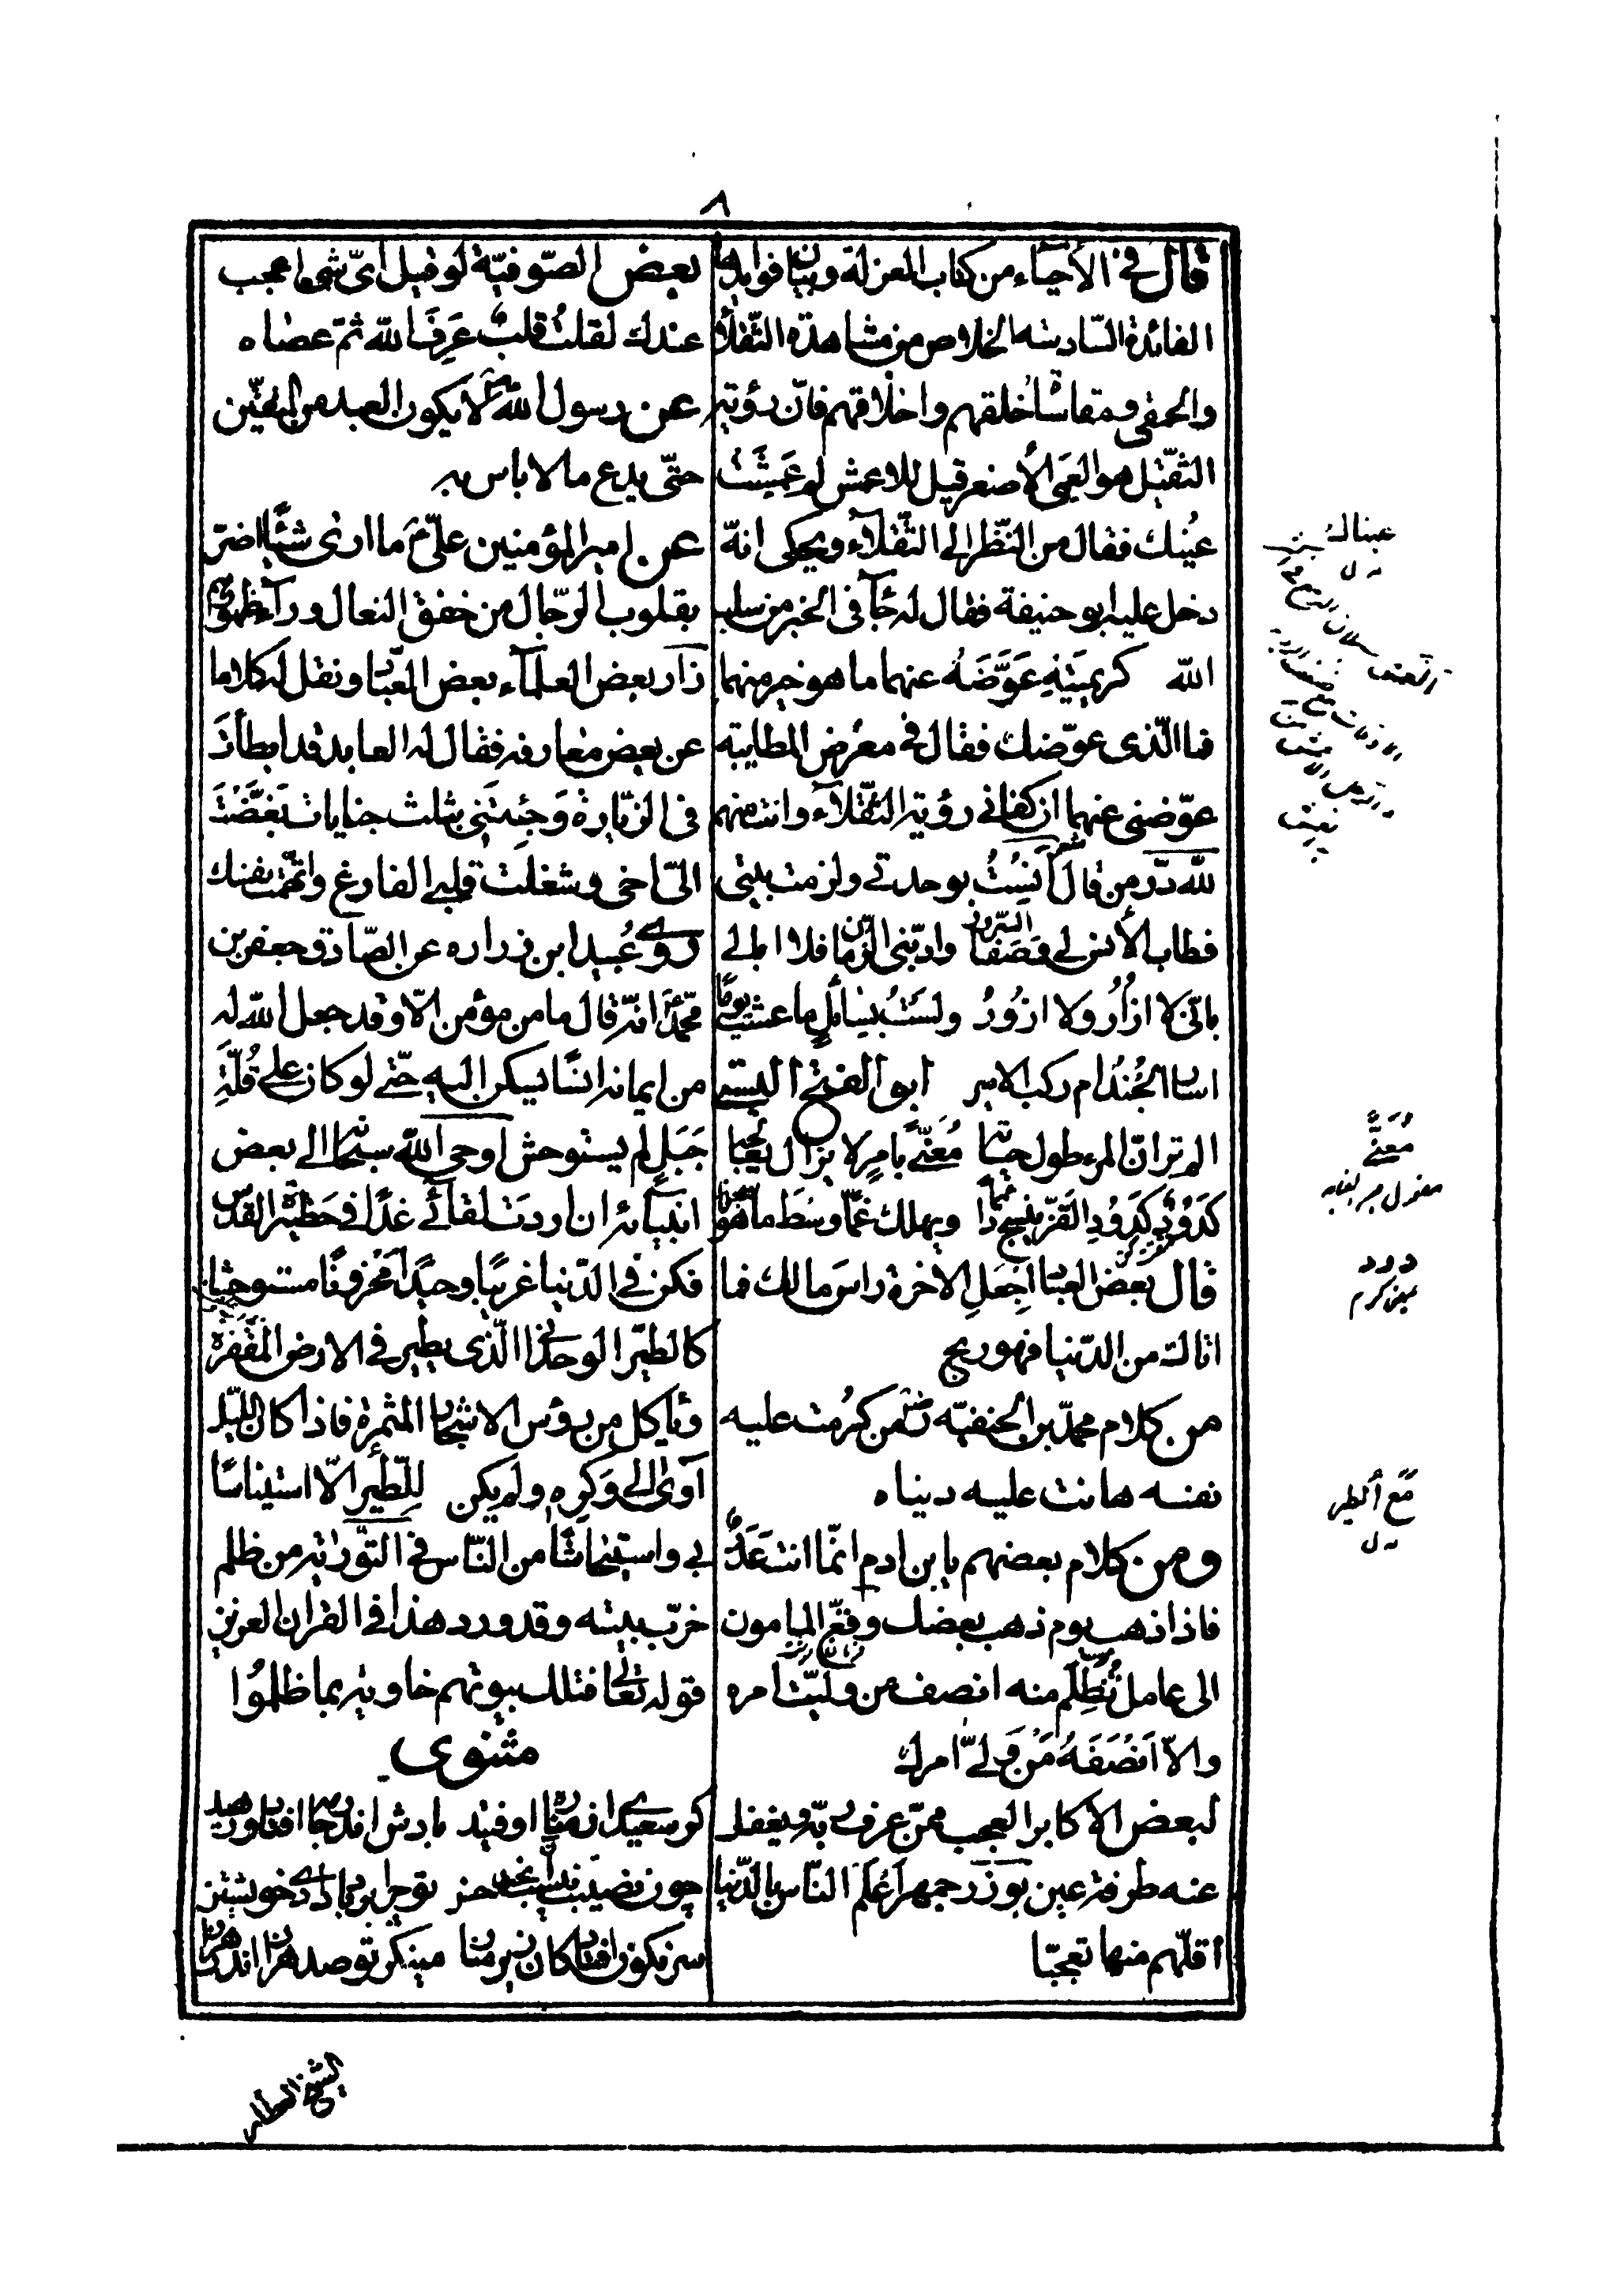 ٨
قال فى الأحياء من كتاب العزلة وبيان فوايدها
الفائدة السادسة الخلاص من مشاهدة الثقلاء
والحمقى ومقاساة خلقهم واخلاقهم فان رؤية
الثقيل هو العمى الأصغر قيل للاعمش لم عمشت
عينك فقال من النظر الى الثقلاء ويحكى انه
دخل عليه ابو حنيفة فقال له جآء فى الخبر من سلب
الله كريمتيه عوّضه عنهما ما هو خير منهما
فما الذى عوّضك فقال فى معرض المطايبة
عوّضنى عنهما ان كفانى رؤية الثقلاء وانت منهم
لله درّ من قال شعر أنست بوحدتى ولزمت بيتى
فطاب الأنس لى وصفا السرور وادّبنى الزمان فلا ابالى
بانى لا ازار ولا ازور ولست بسائل ما عشت يوما
اسار الجند ام ركب الامير ابو الفتح البستى
الم تر ان المرء طول حياته معنّى بامر لا يزال يعالجه
كدود كدود القز ينسج دائما ويهلك غمّا وسط ما هو ناسجه
قال بعض العباد اجعل الاخرة راس مالك فما
اتاك من الدنيا فهو ربح
من كلام محمد بن الحنفيه رض من كرمت عليه
نفسه هانت عليه دنياه
ومن كلام بعضهم يا بن ادم انّما انت عدد
فاذا ذهب يوم ذهب بعضك وقّع المامون
الى عامل تُظلّم منه انصف من وليت امره
والاّ انصفه من ولى امرك
لبعض الاكابر العجب ممن عرف ربه ويغفل
عنه طرفة عين بوزرجمهر أعلم الناس بالدنيا
أقلهم منها تعجبا
بعض الصوفية لو قيل اىّ شئ اعجب
عندك لقلت قلب عرف الله ثم عصاه
عن رسول الله ص لا يكون العبد من المتقين
حتى يدع ما لا باس به
عن امير المؤمنين علىّ ع ما ارى شيئا اضرّ
بقلوب الرجال من خفق النعال ورآء ظهورهم
زار بعض العلمآء بعض العباد ونقل له كلاما
عن بعض معارفه فقال له العابد قد ابطأت
فى الزيارة وجئتنى بثلث جنايات بغّضت
الىّ اخى وشغلت قلبى الفارغ واتهمت نفسك
روى عبيد ابن زراره عن الصادق جعفر بن
محمد ع انه قال ما من مؤمن الاّ وقد جعل الله له
من ايمانه انسا يسكن اليه حتى لو كان على قلّة
جبل لم يستوحش اوحى الله سبحانه الى بعض
انبيائه ان اردت لقآئى غدا فى حظيرة القدس
فكن فى الدنيا غريبا وحيدا محزونا مستوحشا
كالطير الوحدانى الذى يطير فى الارض المقفرة
ويأكل من رؤس الاشجار المثمرة فاذا كان الليل
آوى الى وكره ولم يكن للطير الاّ استيناسا
بى واستيحاشا من الناس فى التورية من ظلم
خرّب بيته وقد ورد هذا فى القران العزيز
قوله تعالى فتلك بيوتهم خاوية بما ظلموا
مثنوى
كر سعيدى از مناره اوفتيد بادش اندر جامه افتاد ورهيد
چون نصيبت نيست آن بخت حسن تو چرا بر باد دادى خويشتن
سرنكون افتادكان زير منار مينكر تو صد هزار اندر هزار
عيناك
معنّى
مفعول
دود
مع الطير
ـه ل
للشيخ العطار